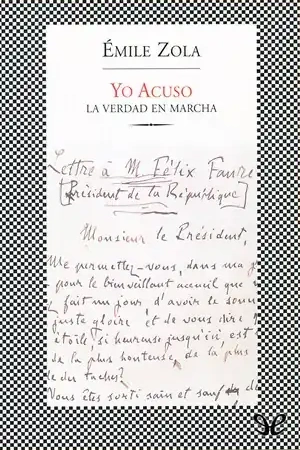 ÉMILE ZOLA
YO ACUSO
LA VERDAD EN MARCHA
Lettre à M. Félix Faure
[Président de la République]
Monsieur le Président,
Me permettez-vous, dans ma
pour le bienveillant accueil que
fait un jour d'avoir le
juste gloire et de vous dire
étoile, si heureuse jusqu'ici, est
de la plus honteuse, de la plus
des taches?
Vous êtes sorti sain et sauf de